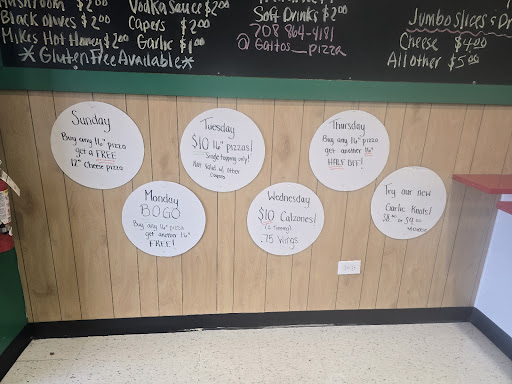 Mushroom $2.00
Black olives $2.00
Mikes Hot Honey $2.00
*Gluten Free Available*
Vodka Sauce $2.00
Capers $2.00
Garlic $1.00
Soft Drinks $2.00
208 864-4181
@Gaitos_pizza
Jumbo slices
Cheese $4.00
All other $5.00
Sunday
Buy any 16" pizza
get a FREE
12" Cheese pizza
Monday
BOGO
Buy any 16" pizza
get another 16"
FREE!
Tuesday
$10 16" pizzas!
Single topping only!
Not valid w. other
Coupons
Wednesday
$10 Calzones!
.75 Wings
Thursday
Buy any 16" pizza
get another 16"
HALF OFF!
Try our new
Garlic Knots!
or